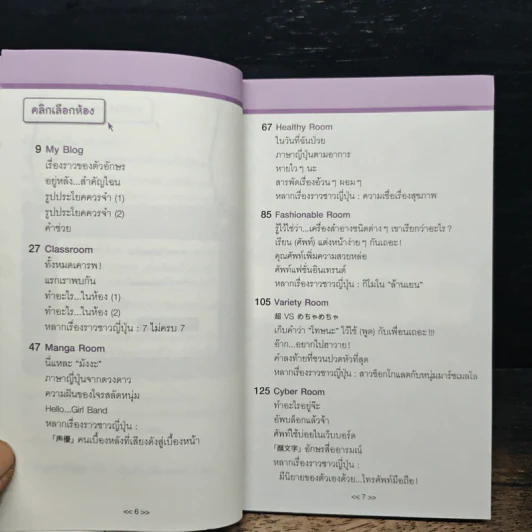 คลิกเลือกห้อง
9 My Blog
เรื่องราวของตัวอักษร
อยู่หลัง...สำคัญไฉน
รูปประโยคควรจำ (1)
รูปประโยคควรจำ (2)
คำช่วย
27 Classroom
ทั้งหมดเคารพ !
แรกเราพบกัน
ทำอะไร...ในห้อง (1)
ทำอะไร...ในห้อง (2)
หลากเรื่องราวชาวญี่ปุ่น : 7 ไม่ครบ 7
47 Manga Room
นี่แหละ "มังงะ"
ภาษาญี่ปุ่นจากดวงดาว
ความฝันของโจรสลัดหนุ่ม
Hello...Girl Band
หลากเรื่องราวชาวญี่ปุ่น :
「声優」คนเบื้องหลังที่เสียงดังสู่เบื้องหน้า
<< 6 >>
67 Healthy Room
ในวันที่ฉันป่วย
ภาษาญี่ปุ่นตามอาการ
หายไว ๆ นะ
สารพัดเรื่องอ้วน ๆ ผอม ๆ
หลากเรื่องราวชาวญี่ปุ่น : ความเชื่อเรื่องสุขภาพ
85 Fashionable Room
รู้ไว้ใช่ว่า...เครื่องสำอางชนิดต่าง ๆ เขาเรียกว่าอะไร ?
เรียน (ศัพท์) แต่งหน้าง่าย ๆ กันเถอะ !
คุณศัพท์เพิ่มความสวยหล่อ
ศัพท์แฟชั่นอินเทรนด์
หลากเรื่องราวชาวญี่ปุ่น : กิโมโน "ล้านเยน"
105 Variety Room
超 VS めちゃめちゃ
เก็บคำว่า "โทษนะ" ไว้ใช้ (พูด) กับเพื่อนเถอะ !!!
อ๊าก...อยากไปฮาวาย !
คำลงท้ายที่ชวนปวดหัวที่สุด
หลากเรื่องราวชาวญี่ปุ่น : สาวช็อกโกแลตกับหนุ่มมาร์ชเมลโล
125 Cyber Room
ทำอะไรอยู่จ๊ะ
อัพบล็อกแล้วจ้า
ศัพท์ใช้บ่อยในเว็บบอร์ด
「顔文字」อักษรสื่ออารมณ์
หลากเรื่องราวชาวญี่ปุ่น :
มีนิยายของตัวเองด้วย...โทรศัพท์มือถือ !
<< 7 >>